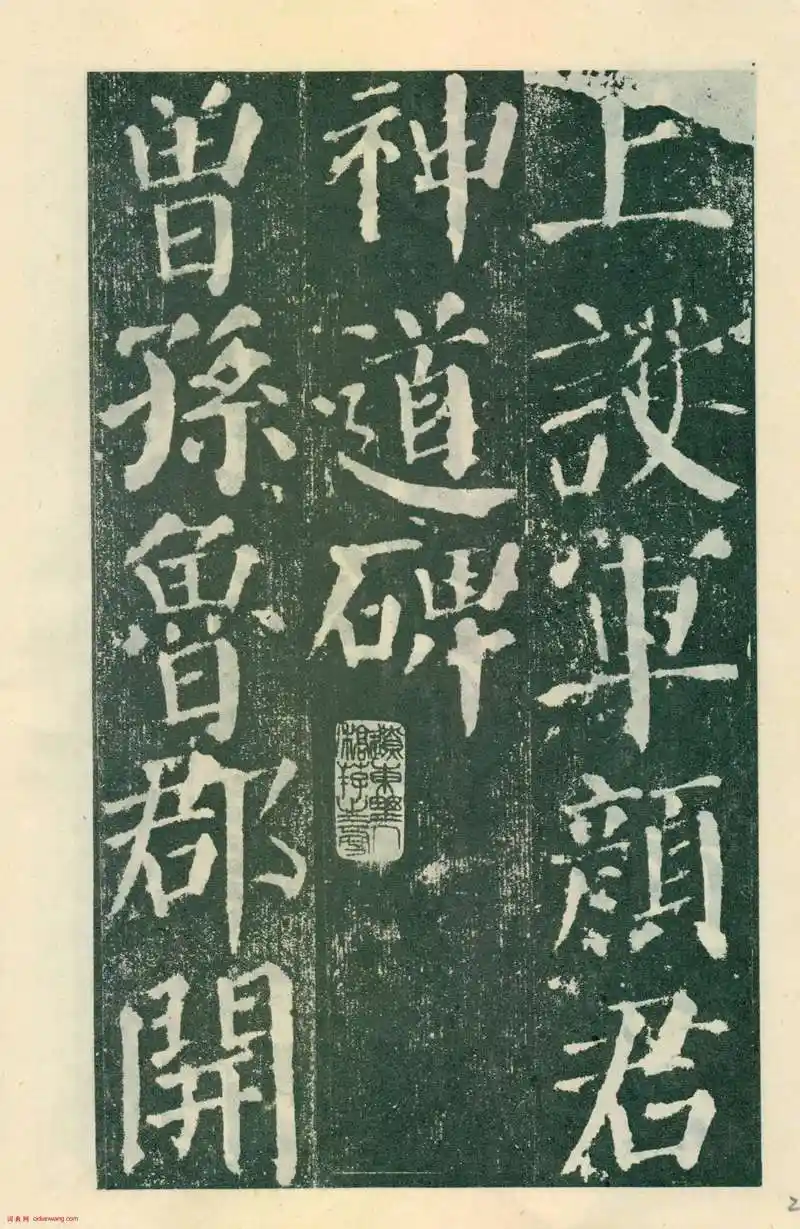 上護軍顏君
神道碑
曾孫魯郡開
2
词典网 cidianwang.com